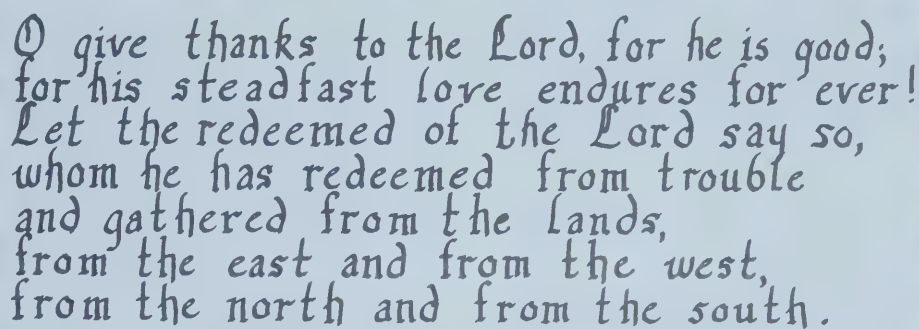 O give thanks to the Lord, for he is good;
for his steadfast love endures for ever!
Let the redeemed of the Lord say so,
whom he has redeemed from trouble
and gathered from the lands,
from the east and from the west,
from the north and from the south.